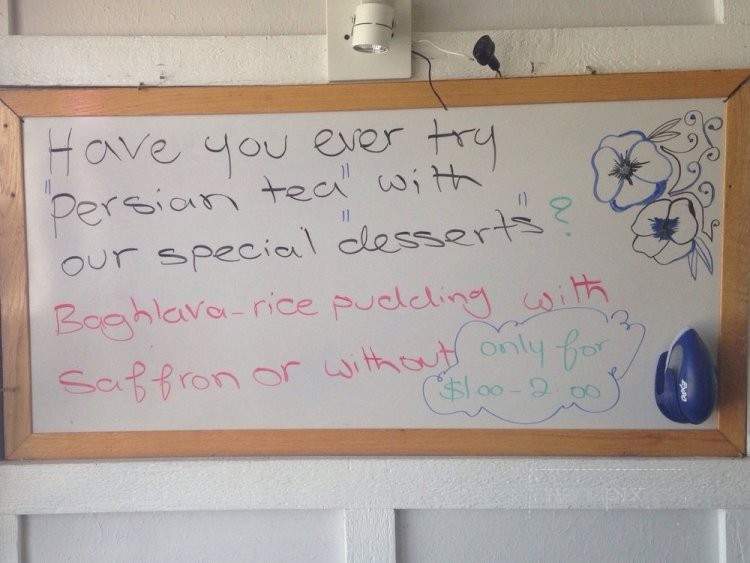 Have you ever try
"Persian tea" with
our special "desserts"?
Baghlava-rice pudding with
saffron or without
only for
$1 00 - 2 00